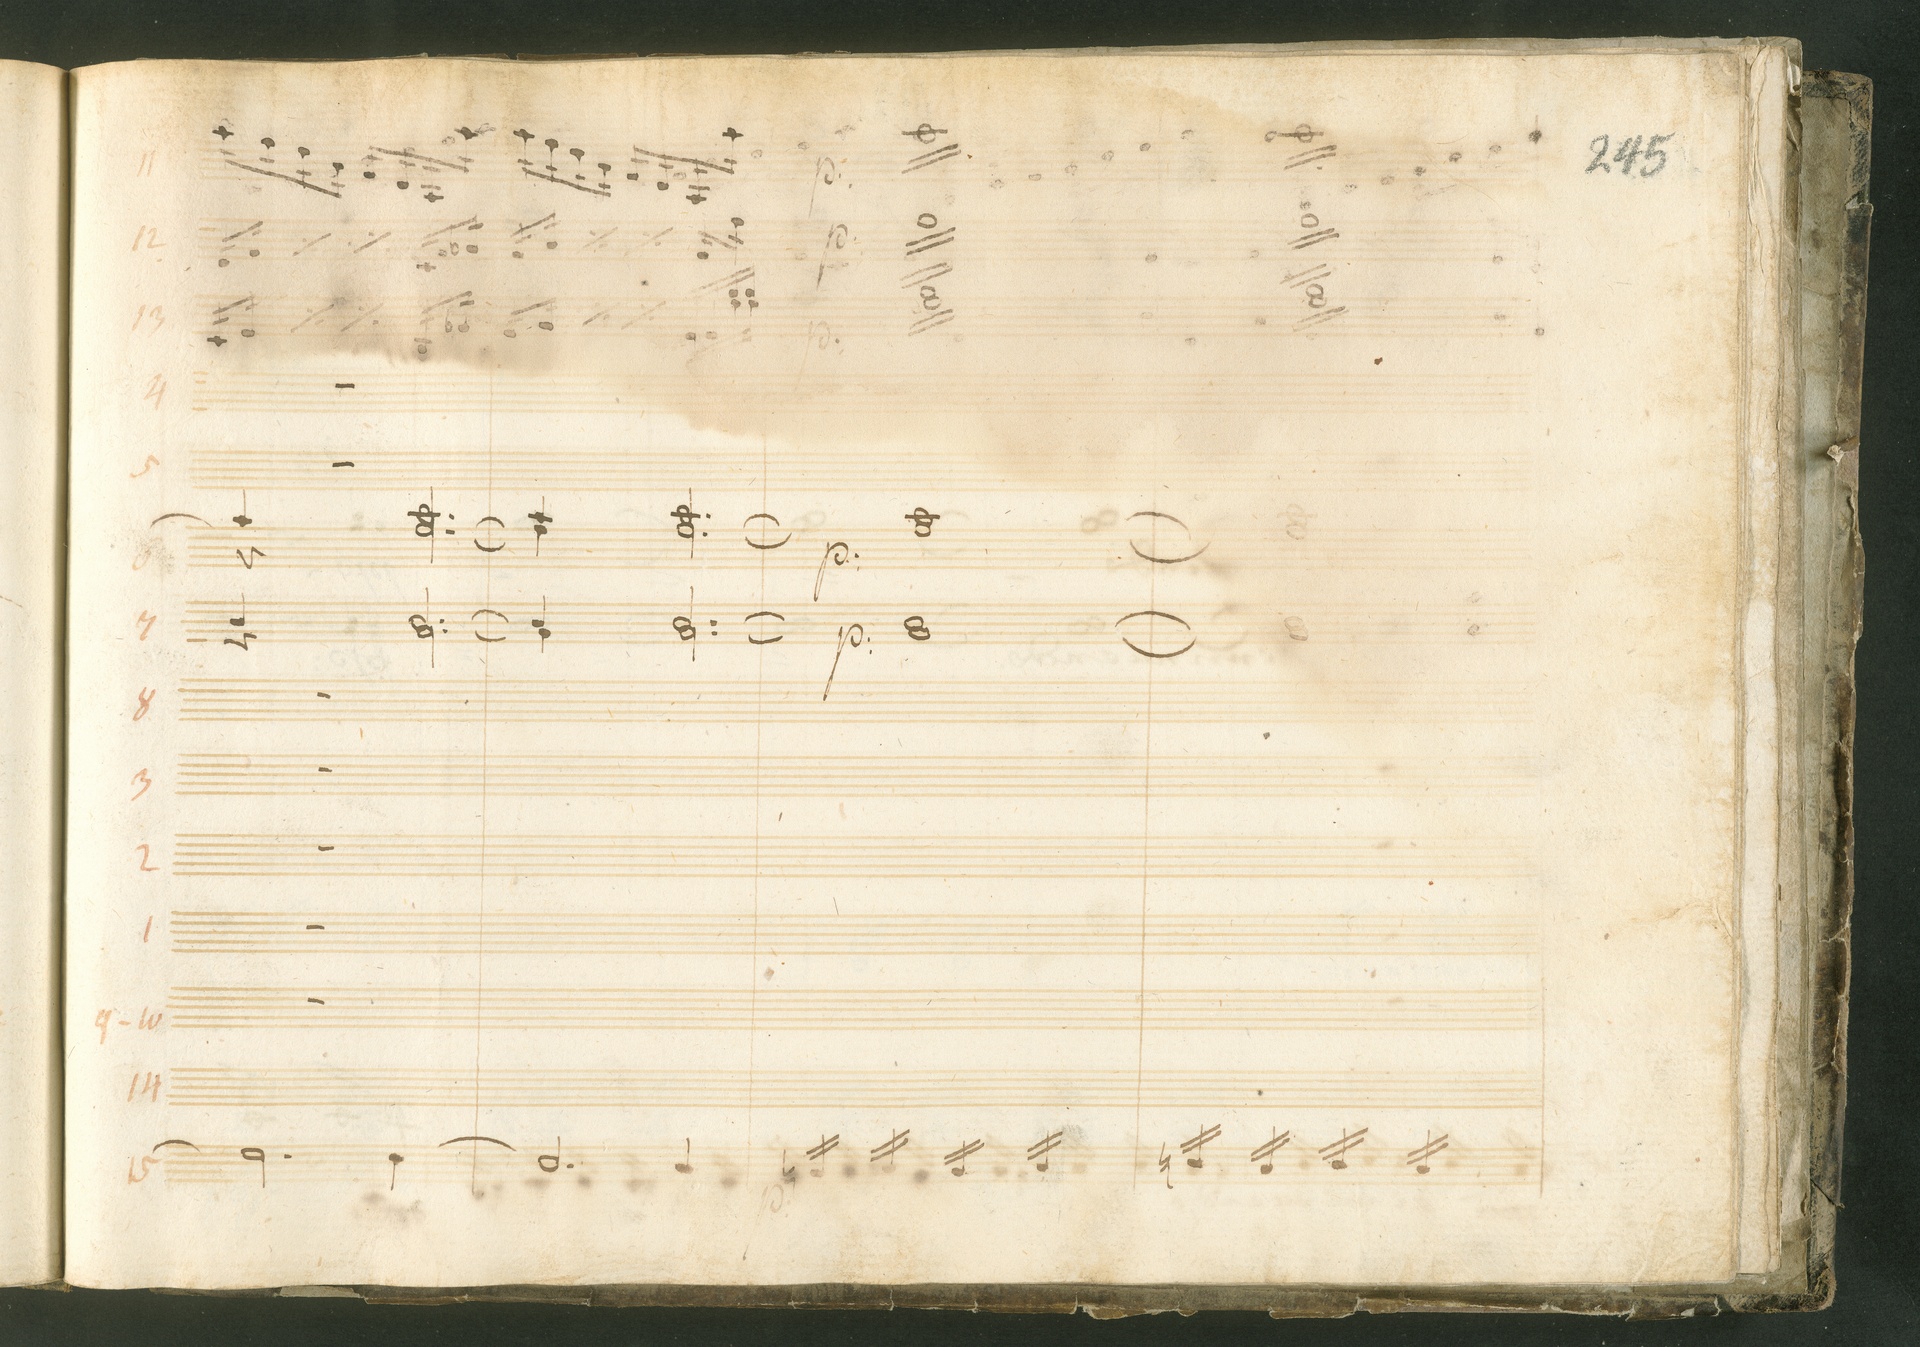 245
11 p:
12 p:
13 p:
4
5
6 p:
7 p:
8
3
2
1
9-10
14
15 p: